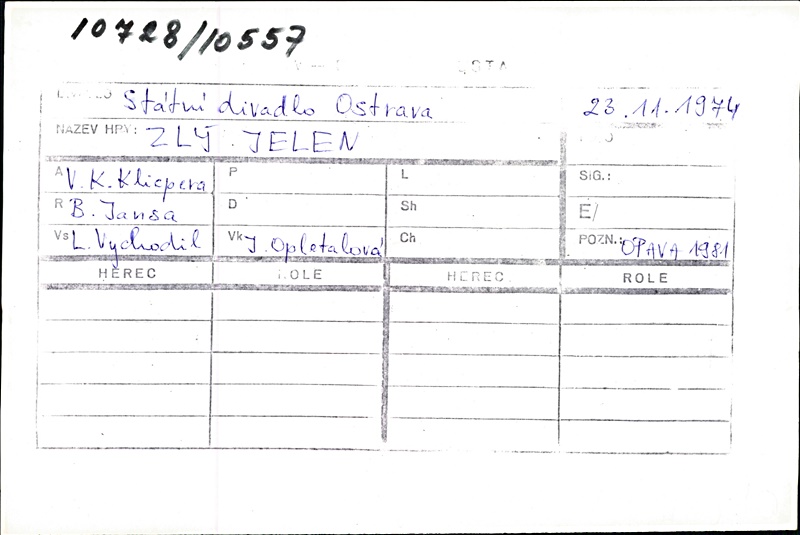 10728/10557
Státní divadlo Ostrava 23.11.1974
NÁZEV HRY: ZLÝ JELEN
A V. K. Klicpera P L SIG.:
R B. Jansa D Sh E/
Vs L. Vychodil Vk J. Opletalová Ch POZN.: OPAVA 1981
HEREC ROLE HEREC ROLE